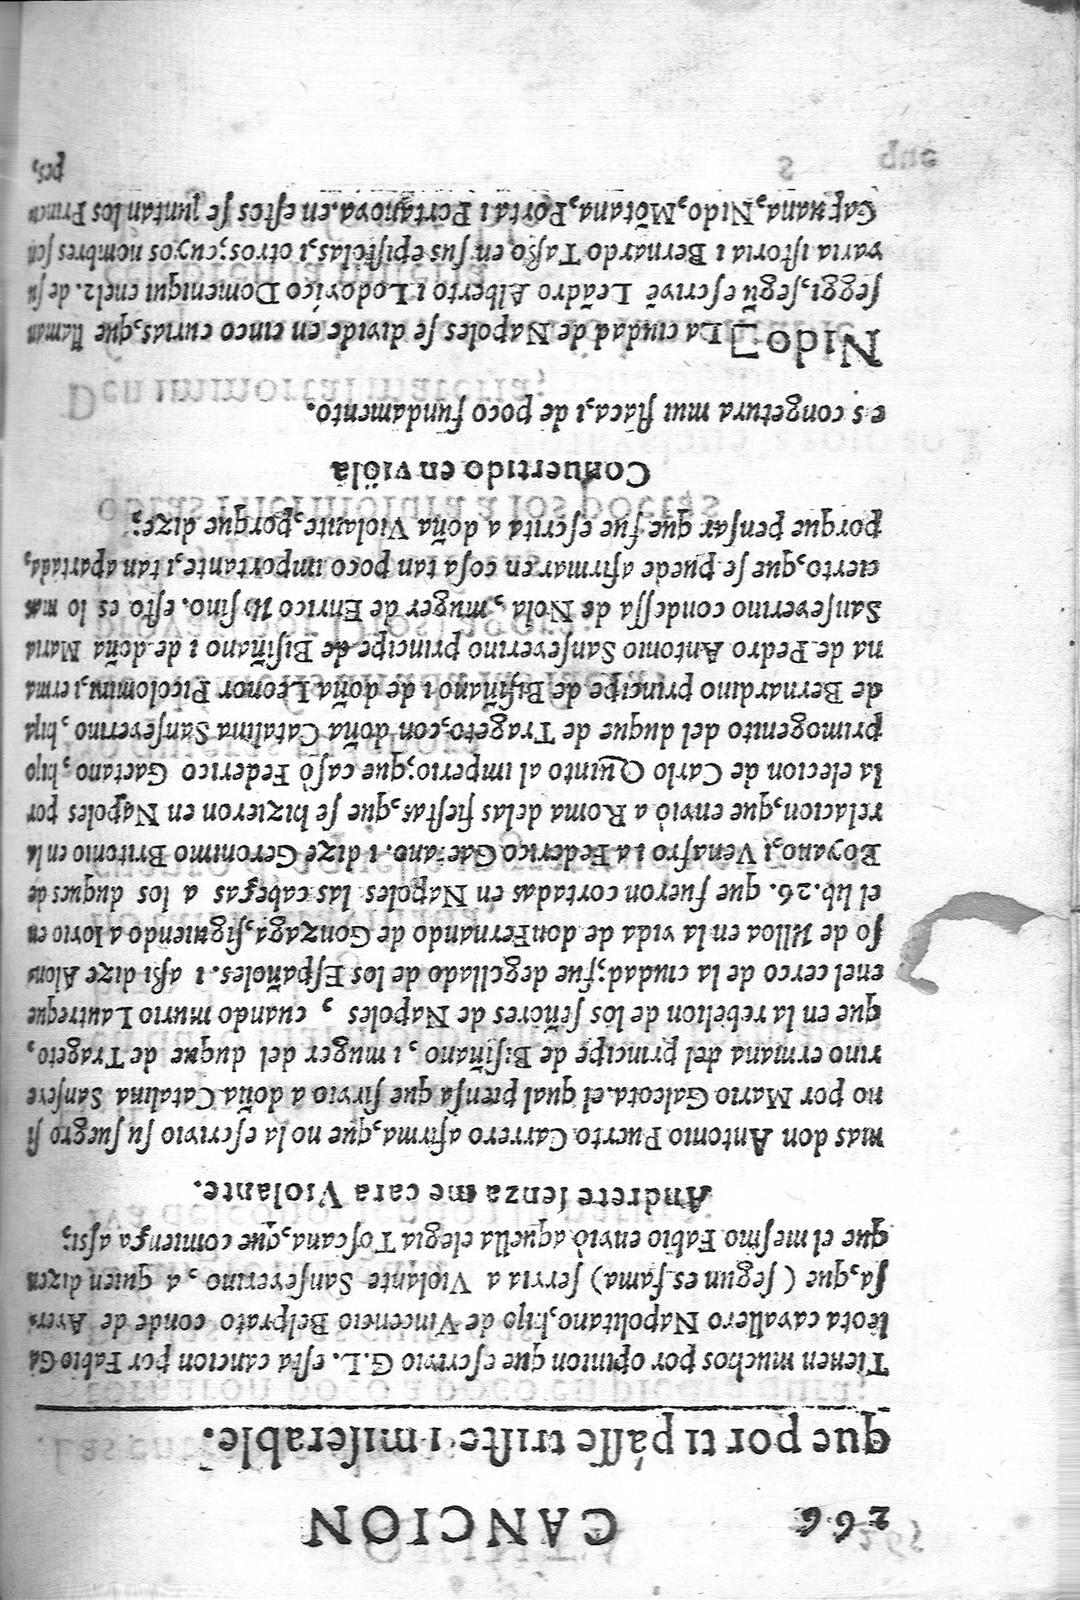 266 CANCION
que por ti pásse triste i miserable.
Tienen muchos por opinion que escrivio G.L. esta cancion por Fabio Ga
leota cavallero Napolitano, hijo de Vincencio Belprato conde de Aver
sa, que ( segun es fama) servia a Violante Sanseverino, a quien dizen
que el mesmo Fabio enviò aquella elegia Toscana, que comiença assi;
Andrete senza me cara Violante.
mas don Antonio Puerto Carrero afirma, que no la escrivio su suegro si
no por Mario Galeota. el qual piensa que sirvio a doña Catalina Sanseve
rino ermana del principe de Bisiñano, i muger del duque de Trageto,
que en la rebelion de los señores de Napoles, cuando murio Lautreque
en el cerco de la ciudad; fue degollado de los Españoles. i assi dize Alon
so de Ulloa en la vida de don Fernando de Gonzaga, siguiendo a Iovio en
el lib. 26. que fueron cortadas en Napoles las cabeças a los duques de
Boyano, i Venafro i a Federico Gaetano. i dize Geronimo Britonio en la
relacion, que enviò a Roma de las fiestas, que se hizieron en Napoles por
la elecion de Carlo Quinto al imperio; que casò Federico Gaetano, hijo
primogenito del duque de Trageto, con doña Catalina Sanseverino, hija
de Bernardino principe de Bisiñano i de doña Leonor Picolomini, i erma
na de Pedro Antonio Sanseverino principe de Bisiñano i de doña Maria
Sanseverino condessa de Nola, muger de Enrico Ursino. esto es lo mas
cierto, que se puede afirmar en cosa tan poco importante, i tan apartada,
porque pensar que fue escrita a doña Violante, porque dize;
Convertido en viöla
es congetura mui flaca, i de poco fundamento.
Nido ] La ciudad de Napoles se divide en cinco curias, que llaman
seggi, segũ escrivẽ Leãdro Alberto i Lodovico Domeniqui en el 2. de su
varia istoria i Bernardo Tasso en sus epistolas, i otros; cuyos nombres son
Capuana, Nido, Mõtana, Porta i Portanova. en estos se juntan los Princi
S pes,